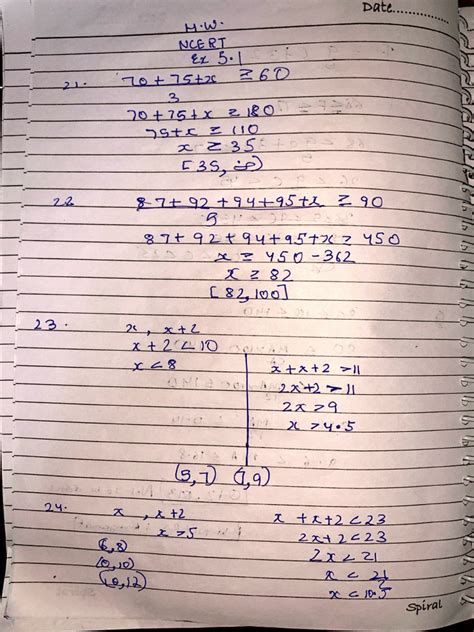 Date.............
H.W.
NCERT
Ex 5.1
21. 70 + 75 + x ≥ 60
3
70 + 75 + x ≥ 180
75 + x ≥ 110
x ≥ 35
22 87 + 92 + 94 + 95 + x ≥ 90
5
87 + 92 + 94 + 95 + x ≥ 450
x ≥ 450 - 362
x ≥ 82
[82, 100]
23. x, x+2
x + 2 < 10
x < 8
x + x + 2 > 11
2x + 2 > 11
2x > 9
x > 4.5
(5, 7) (7, 9)
24. x, x+2
x > 5
(6, 8)
(10, 12)
x + x + 2 < 23
2x + 2 < 23
2x < 21
x < 21
2
x < 10.5
Spiral